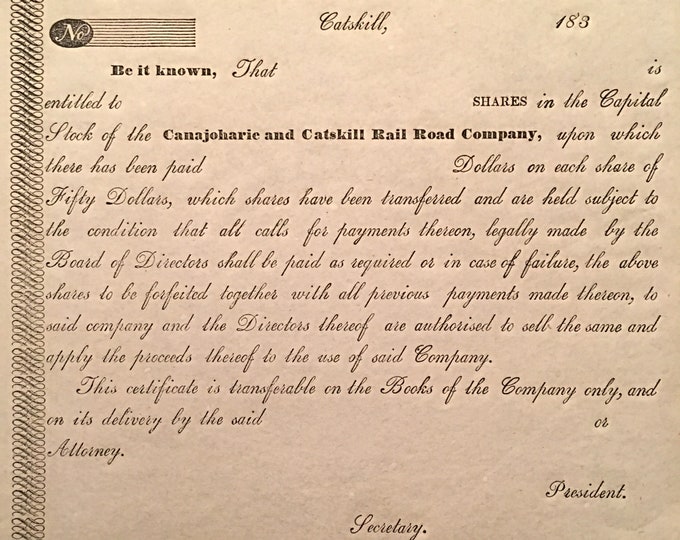 No Catskill, 183
Be it known, That is
entitled to SHARES in the Capital
Stock of the Canajoharie and Catskill Rail Road Company, upon which
there has been paid Dollars on each share of
Fifty Dollars, which shares have been transferred and are held subject to
the condition that all calls for payments thereon, legally made by the
Board of Directors shall be paid as required or in case of failure, the above
shares to be forfeited together with all previous payments made thereon, to
said company and the Directors thereof are authorised to sell the same and
apply the proceeds thereof to the use of said Company.
This certificate is transferable on the Books of the Company only, and
on its delivery by the said or
Attorney.
President.
Secretary.